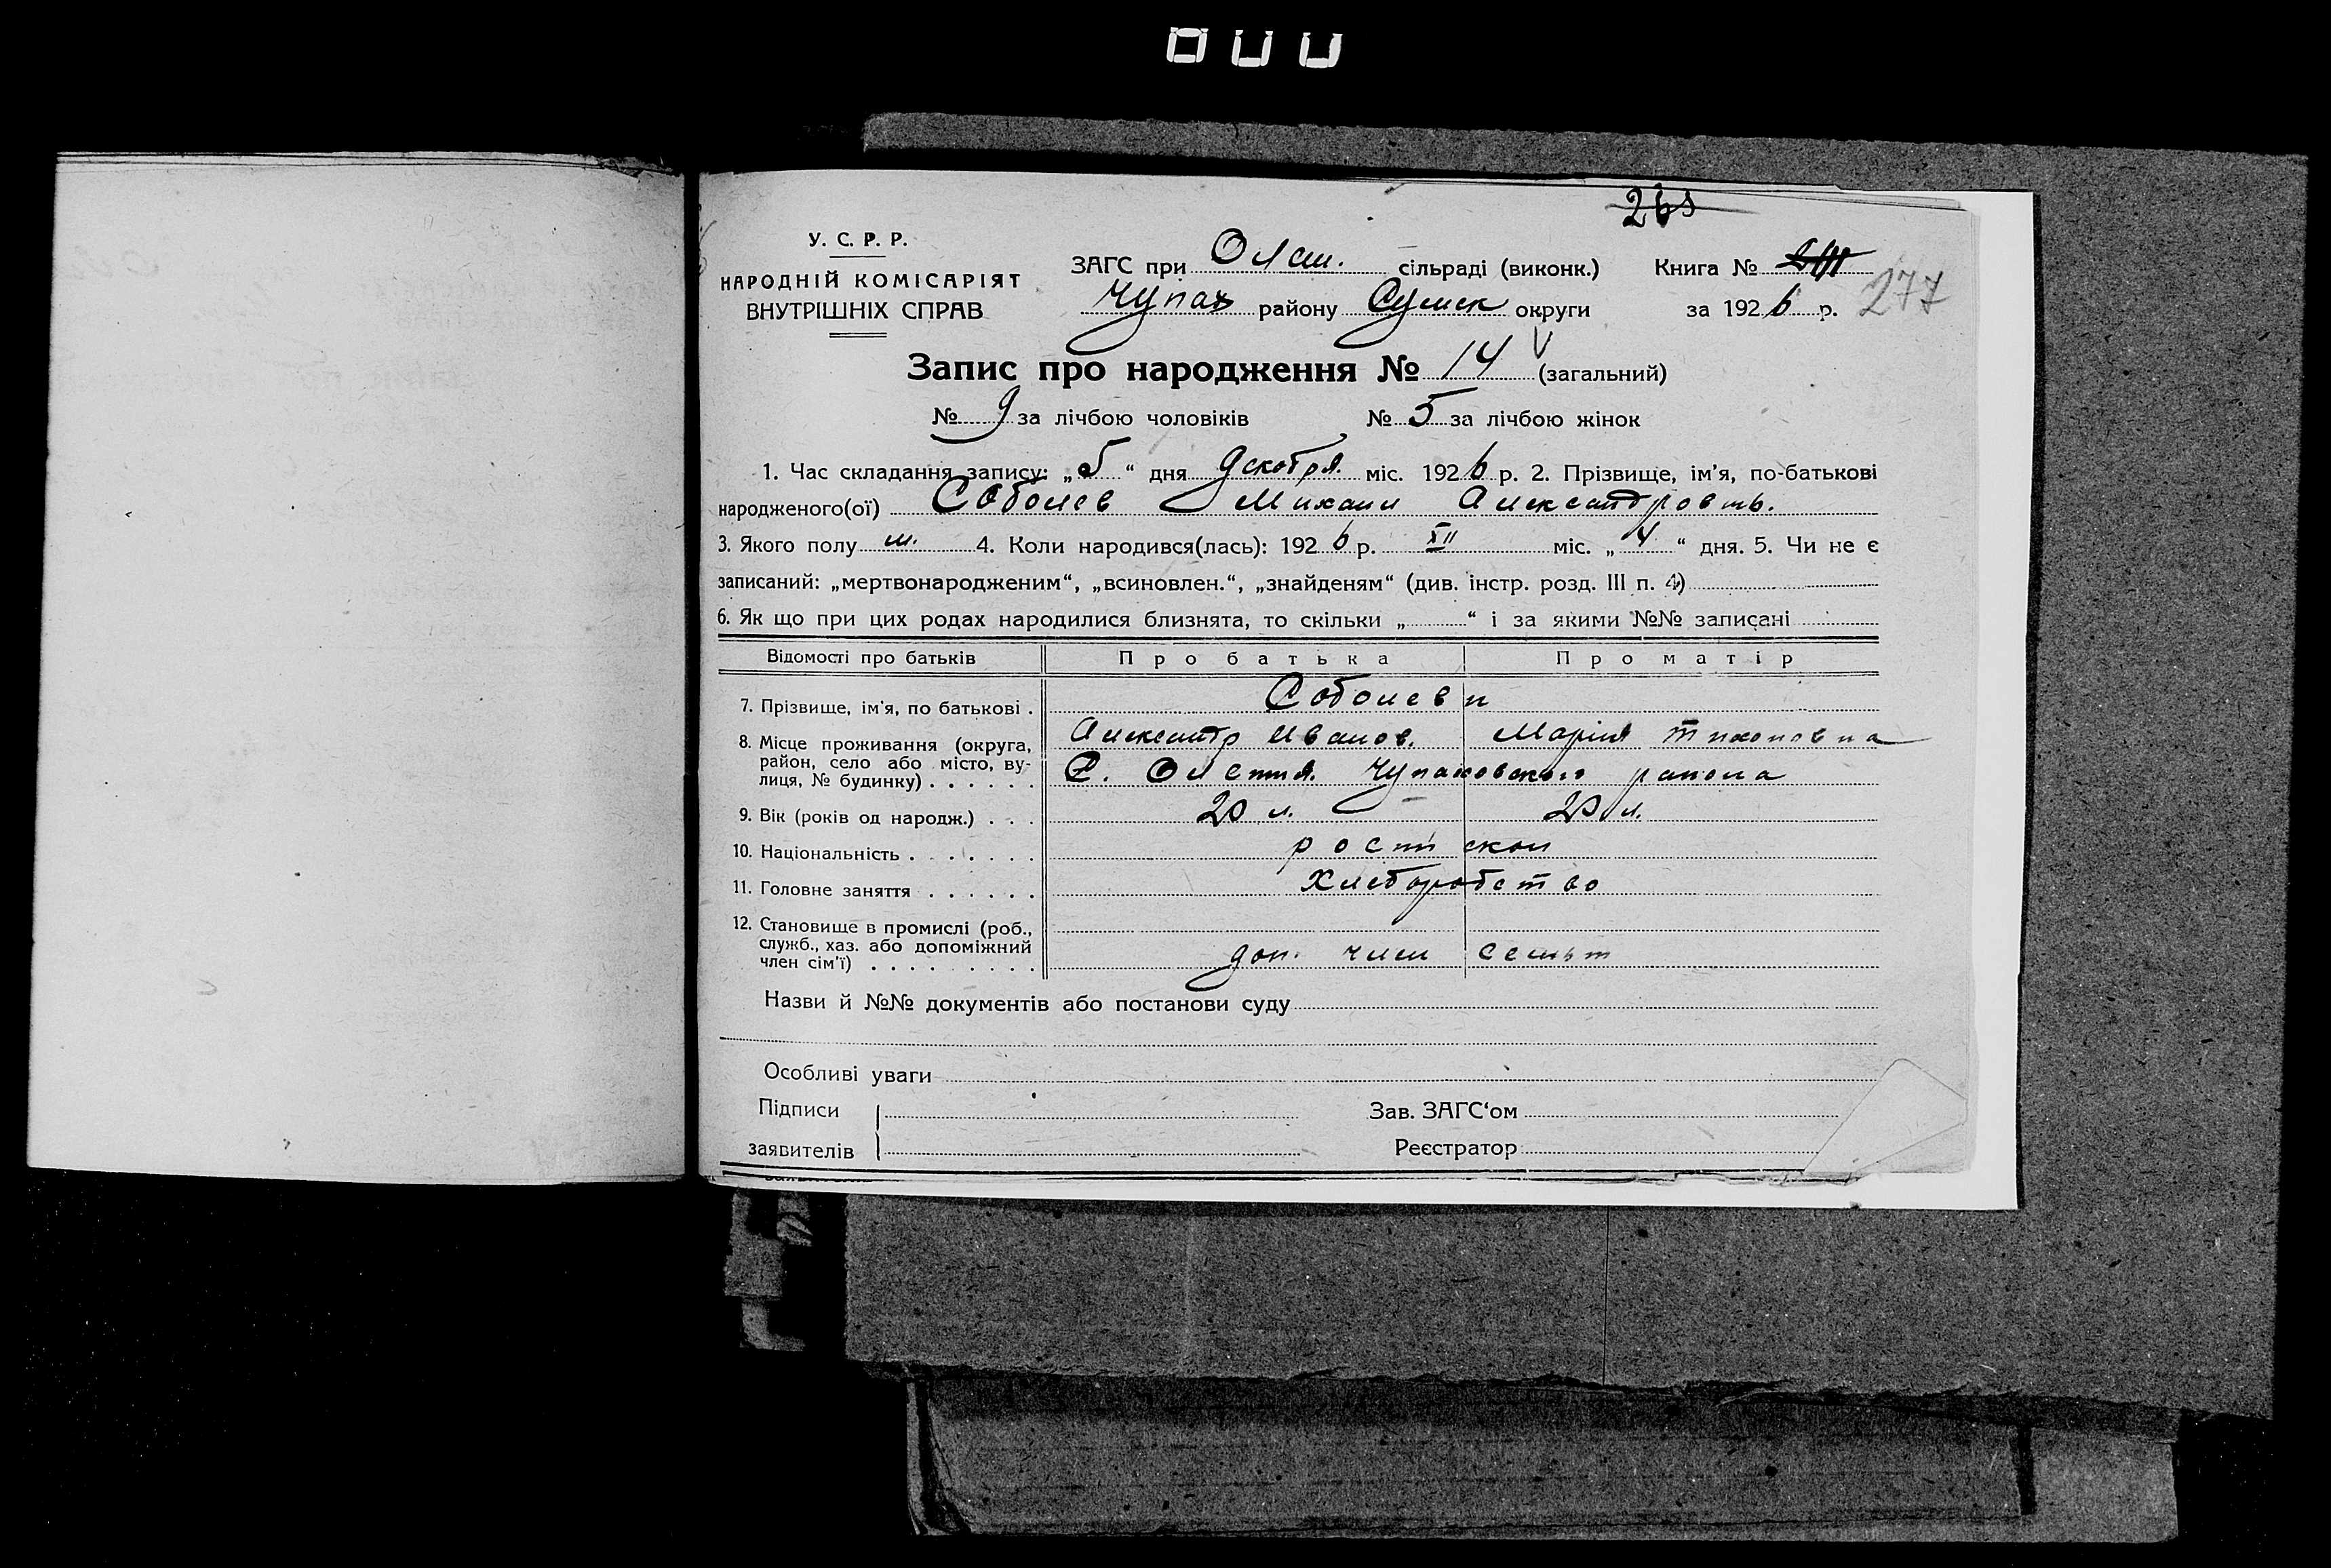 265
У. С. Р. Р.
НАРОДНІЙ КОМІСАРІЯТ
ВНУТРІШНІХ СПРАВ
ЗАГС при Олеш. сільраді (виконк.) Книга №
Чупах району Сумск округи за 1926 р. 277
Запис про народження № 14 (загальний)
№ 9 за лічбою чоловіків № 5 за лічбою жінок
1. Час складання запису: „5“ дня декабря міс. 1926 р. 2. Прізвище, ім’я, по-батькові
народженого(ої) Соболев Михаил Александровичь.
3. Якого полу м. 4. Коли народився(лась): 1926 р. XII міс. „4“ дня. 5. Чи не є
записаний: „мертвонародженим“, „всиновлен.“, „знайденям“ (див. інстр. розд. III п. 4)
6. Як що при цих родах народилися близнята, то скільки „ “ і за якими №№ записані
Відомості про батьків Про батька Про матір
7. Прізвище, ім’я, по батькові . Соболеви
Александр Иванов. Мария Тихоновна
8. Місце проживання (округа,
район, село або місто, ву-
лиця, № будинку) . . . . . . С. Олешня. Чупаховского раиона
9. Вік (років од народж.) . . . 20 л. 20 л.
10. Національність . . . . . . .
11. Головне заняття . . . . . . Хлеборобство
12. Становище в промислі (роб.,
служб., хаз. або допоміжний
член сім’ї) . . . . . . . . . доп. член
Назви й №№ документів або постанови суду
Особливі уваги
Підписи Зав. ЗАГС‘ом
заявителів Реєстратор